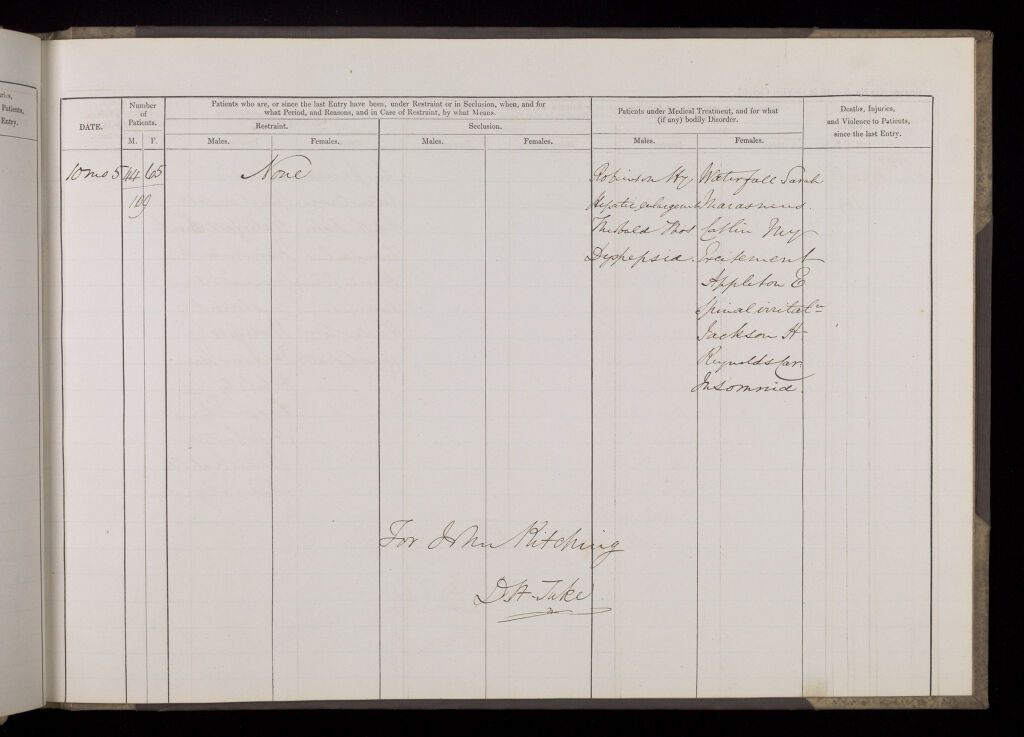 uries,
Patients,
Entry.
DATE.
Number
of
Patients.
M. F.
Patients who are, or since the last Entry have been, under Restraint or in Seclusion, when, and for
what Period, and Reasons, and in Case of Restraint, by what Means.
Restraint.
Seclusion.
Males.
Females.
Males.
Females.
Patients under Medical Treatment, and for what
(if any) bodily Disorder.
Males.
Females.
Deaths, Injuries,
and Violence to Patients,
since the last Entry.
10 mo 5
44 65
109
None
Robinson Hy
Hepatic enlargemt
Theobald Thos
Dyspepsia.
Waterfall Sarah
Marasmus.
Catlin My
Excitement
Appleton E
Spinal irritatn
Jackson H
Reynolds Car
Insomnia.
For John Kitching
D H Tuke